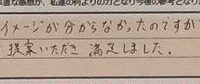 イメージが分からなかったのですが
提案いただき 満足しました。